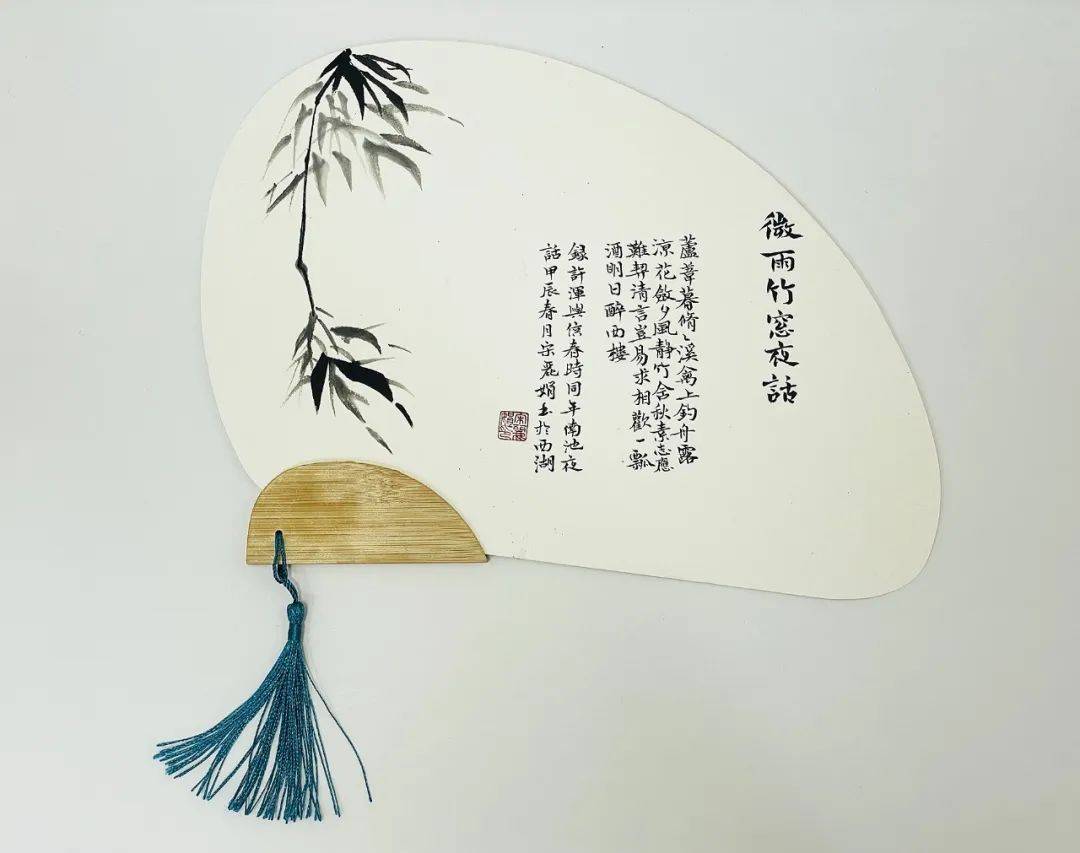 微雨竹窓夜話
蘆葦暮脩々溪禽上釣舟露
涼花斂夕風靜竹含秋素志應
難契清言豈易求相歡一瓢
酒明日醉西樓
録許渾與侯春時同年南池夜
話甲辰春月宋麗娟書於西湖